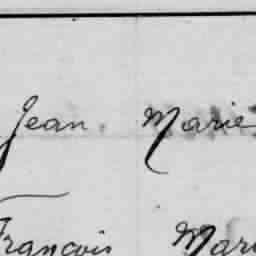 Jean Marie
François Mari